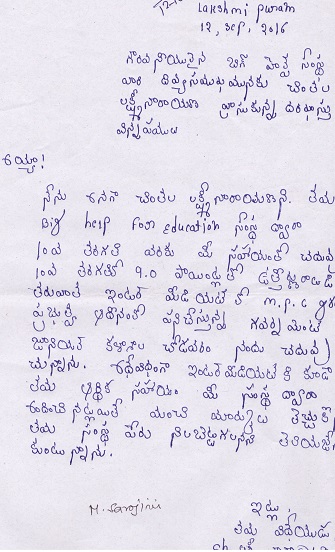 Lakshmi puram
12, sep, 2016
గౌరవనీయులైన బిగ్ హెల్ప్ సంస్థ
వారి దివ్యసముఖమునకు చింతల
లక్ష్మీనారాయణ వ్రాసుకున్న దరఖాస్తు
విన్నపములు
అయ్యా!
నేను అనగా చింతల లక్ష్మీనారాయణని. తమ
Big help For Education సంస్థ ద్వారా
10వ తరగతి వరకు మీ సహాయంతో చదువు
10వ తరగతిలో 9.0 పాయింట్లతో
తరువాత ఇంటర్ మీడియట్ లో M.P.C
ప్రభుత్వ పనిచేస్తున్న గవర్నమెంట్
జూనియర్ కళాశాల చోడవరం నందు చదువు
చున్నాను. అదేవిధంగా ఇంటర్మీడియట్ కి కూడా
తమ ఆర్థిక సహాయం మీ సంస్థ ద్వారా
అందించినట్లయితే మంచి మార్కులు తెచ్చు
తమ సంస్థ పేరు నిలబెట్టగలనని
కుంటున్నాను.
M. Sarojini
ఇట్లు
తమ విధేయుడు